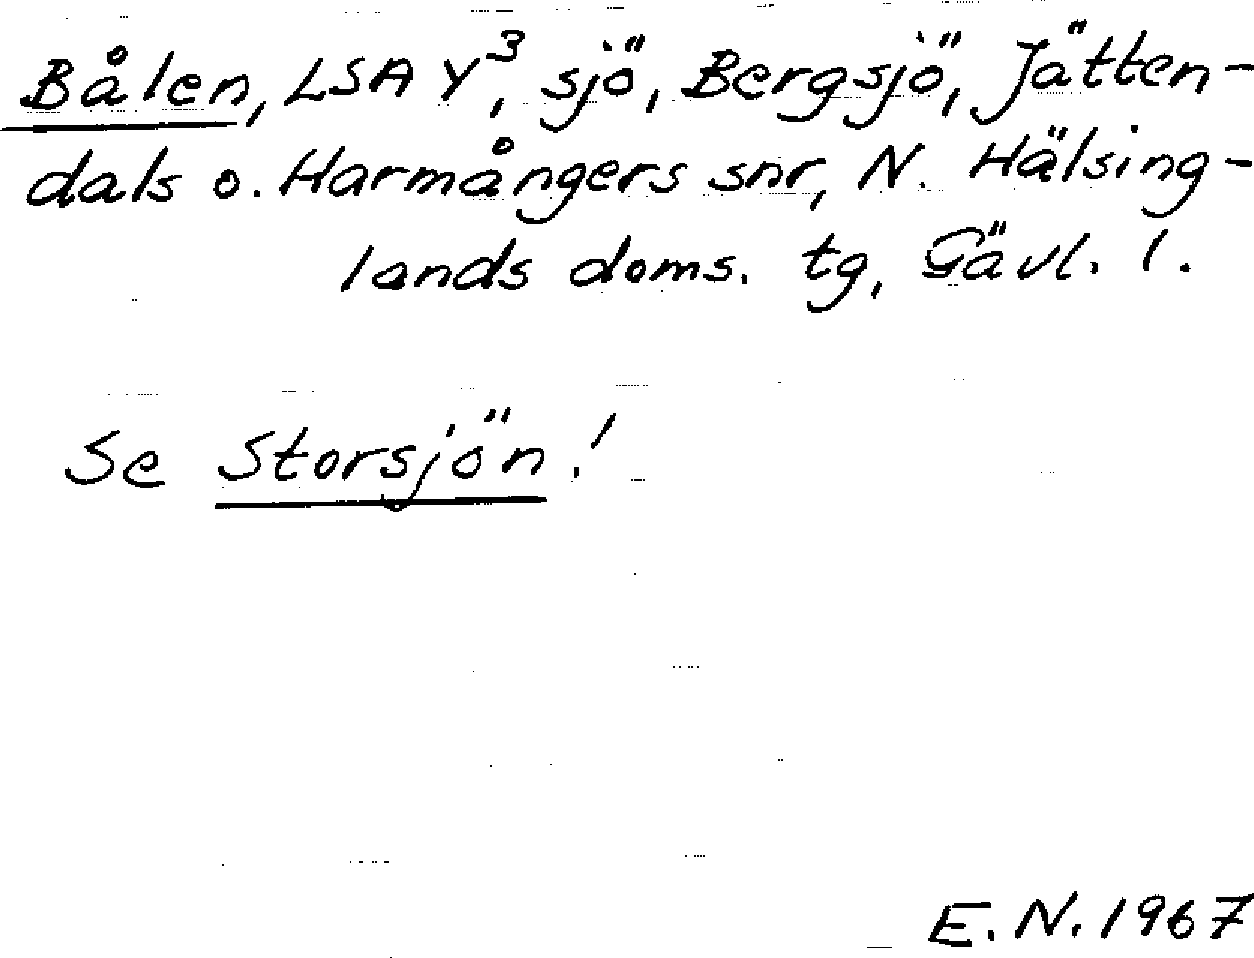 Bålen, LSA Y³, sjö, Bergsjö, Jätten-
dals o. Harmångers snr, N. Hälsing-
lands doms. tg, Gävl. l.
Se Storsjön!
E. N. 1967